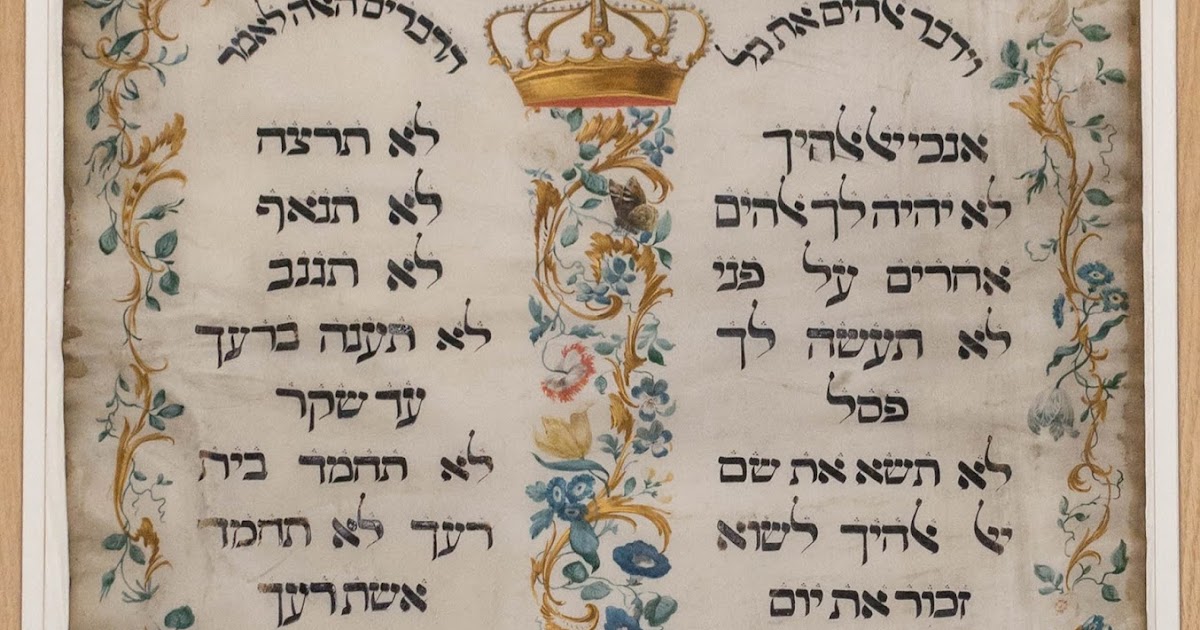 וידבר ﭏהים את כל
הדברים הﭏה לאמר
אנכי יﭏ ﭏהיך
לא יהיה לך ﭏהים
אחרים על פני
לא תעשה לך
פסל
לא תשא את שם
יﭏ ﭏהיך לשוא
זכור את יום
לא תרצה
לא תנאף
לא תגנב
לא תענה ברעך
עד שקר
לא תחמד בית
רעך לא תחמד
אשת רעך